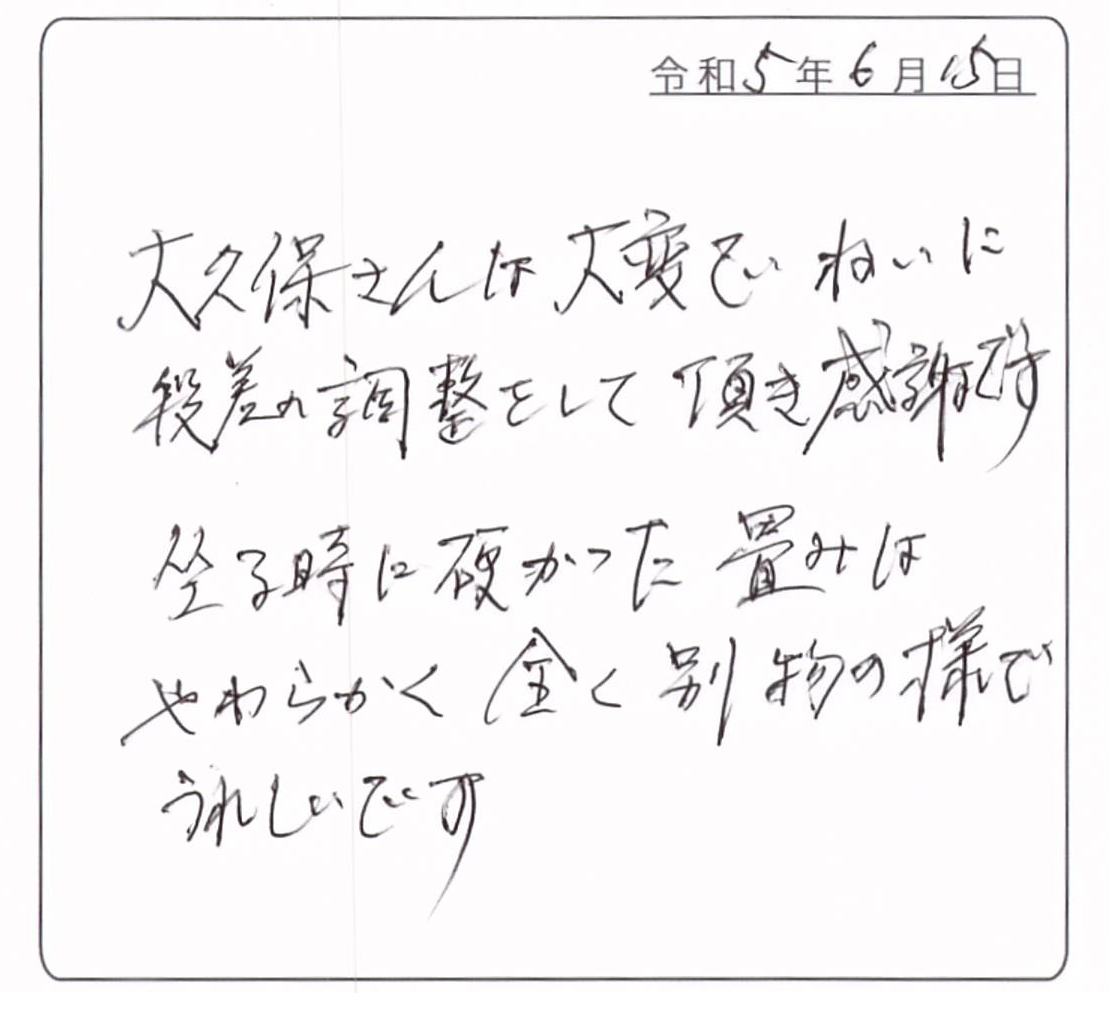 令和5年6月15日
大久保さんは大変ていねいに
段差の調整をして頂き感謝です
坐る時に硬かった畳みは
やわらかく全く別物の様で
うれしいです